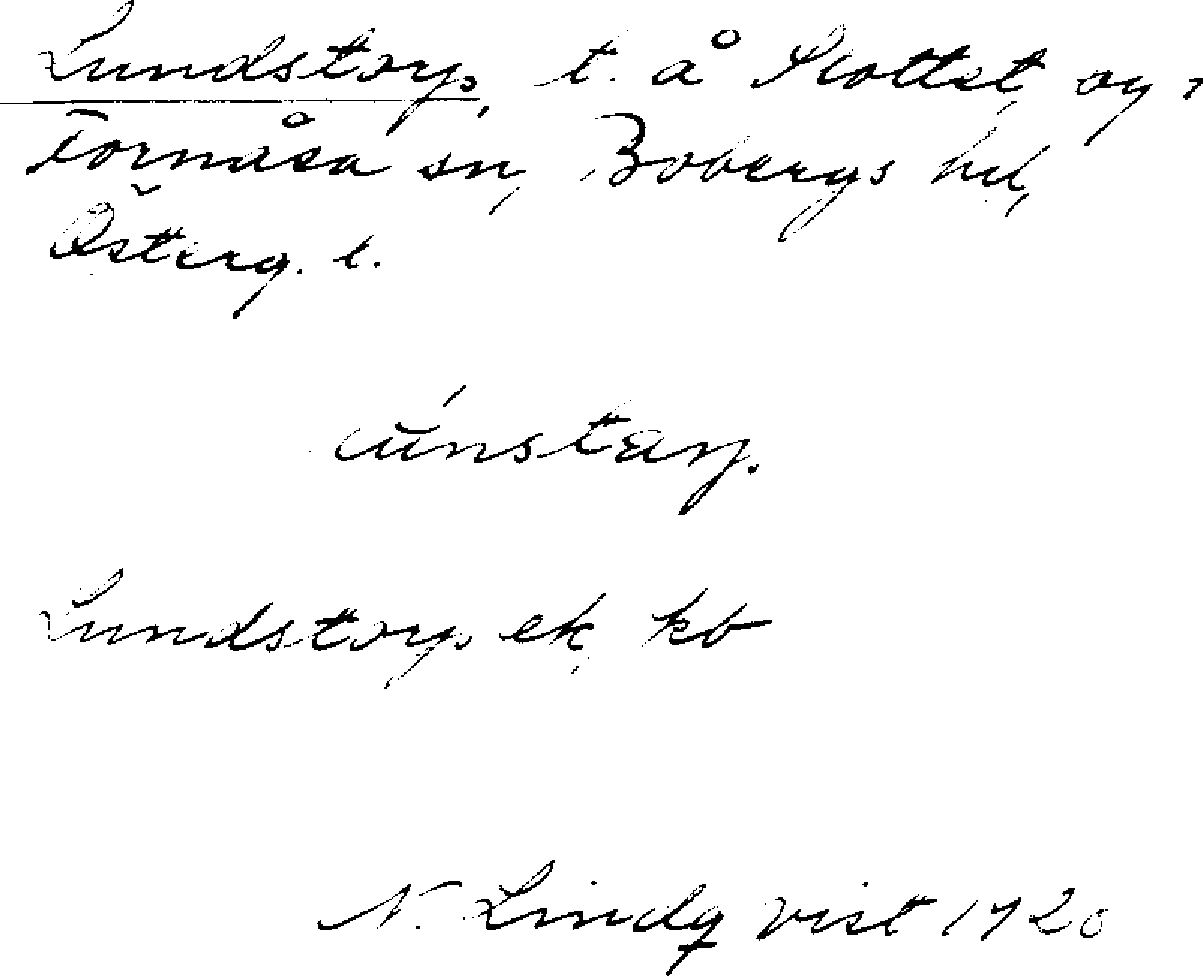 Lundstorp, t. å Slottet, og i
Fornåsa sn, Bobergs hd,
Österg. l.
Lundstorp ek, kb
N. Lindqvist 1920